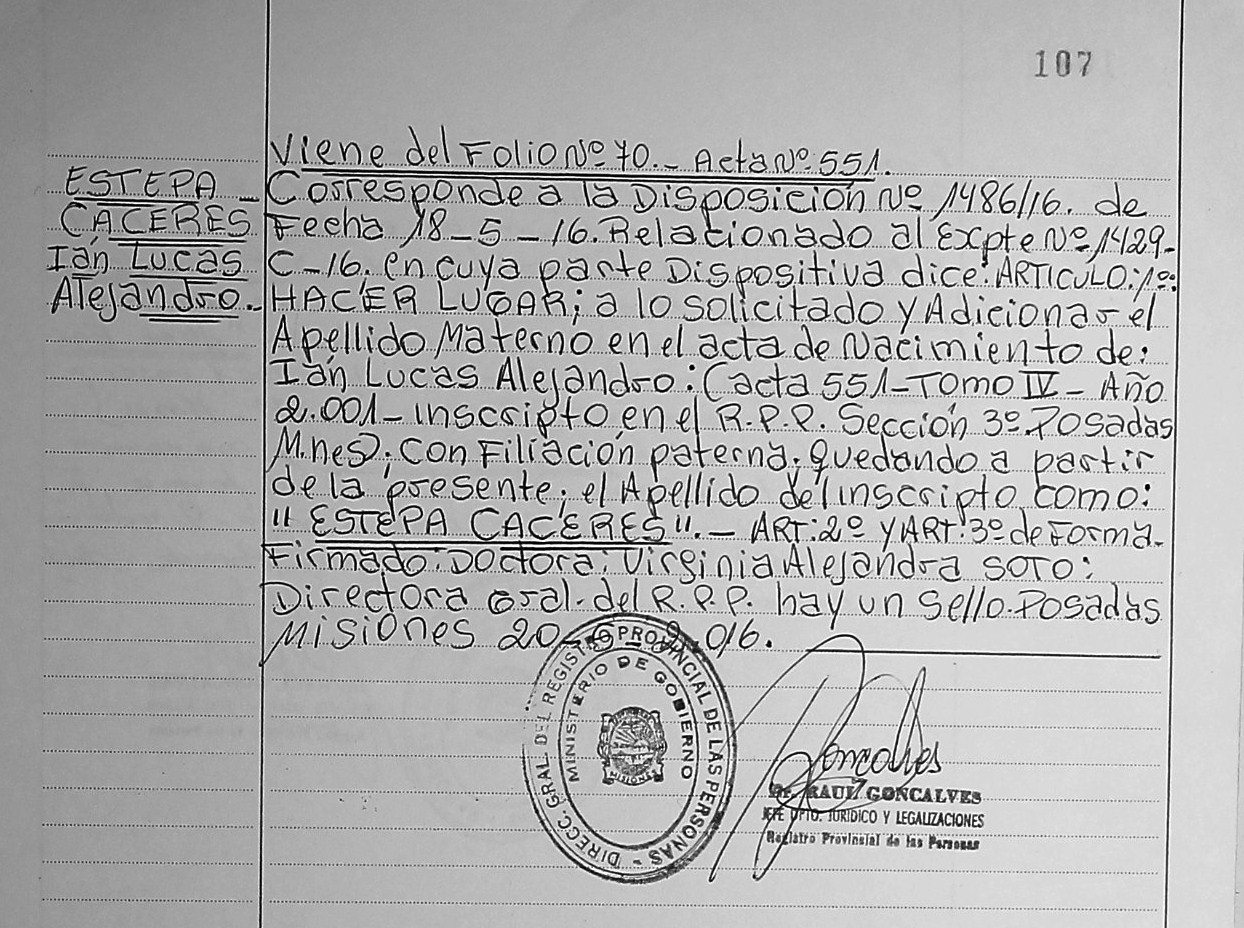 107
Viene del Folio Nº 70._ Acta Nº 551.
ESTEPA_
CACERES
Ián Lucas
Alejandro._
Corresponde a la Disposición Nº 1486/16. de
Fecha 18_5_16. Relacionado al Expte Nº 1429-
C-16. en cuya parte Dispositiva dice: ARTICULO: 1º:
HACER LUGAR; a lo solicitado y Adicionar el
Apellido Materno en el acta de Nacimiento de:
Ián Lucas Alejandro: (acta 551-TOMO IV- Año
2.001- inscripto en el R.P.P. Sección 3º. Posadas
M.nes); con Filiación paterna; quedando a partir
de la presente; el Apellido del inscripto como:
"ESTEPA CACERES".- ART: 2º y ART: 3º de Forma.
Firmado: Doctora: Virginia Alejandra SOTO:
Directora Gral. del R.P.P. hay un sello. Posadas
Misiones 20 016.
DIRECC. GRAL. DEL REGISTRO PROVINCIAL DE LAS PERSONAS -
MINISTERIO DE GOBIERNO
MISIONES
Goncalves
Dr. RAUL GONCALVES
JEFE DPTO. JURIDICO Y LEGALIZACIONES
Registro Provincial de las Personas